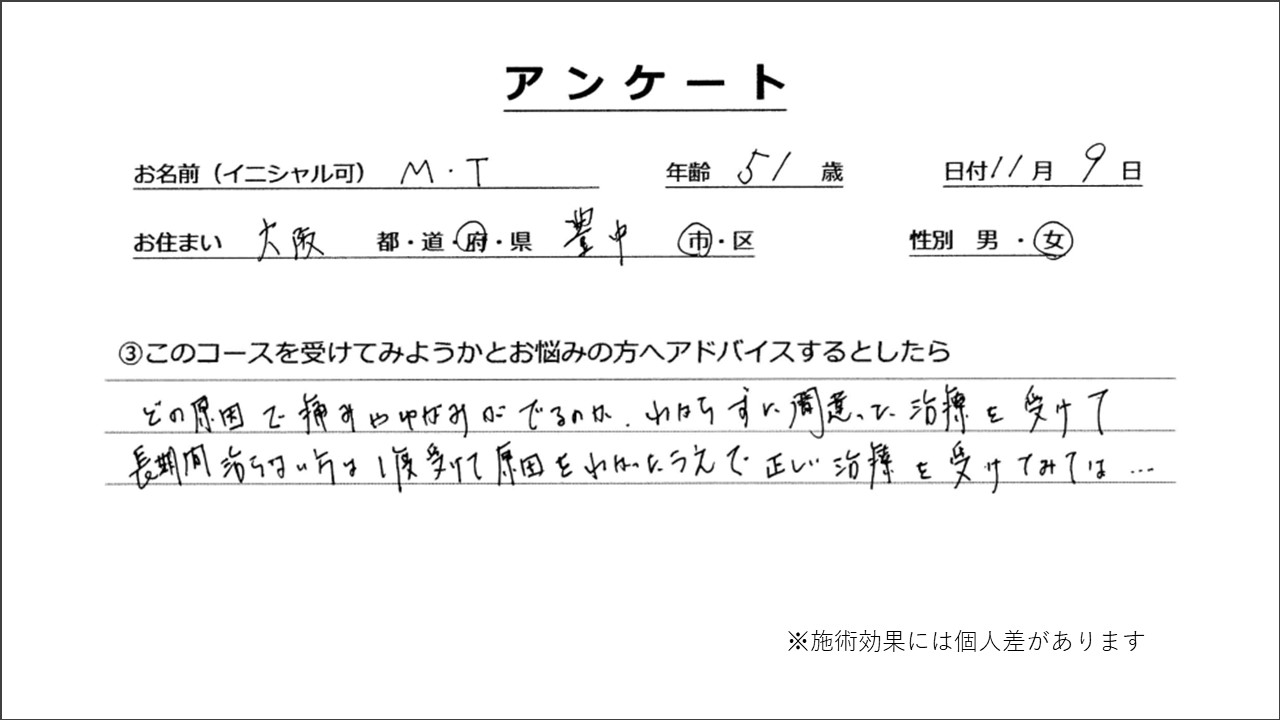 アンケート
お名前（イニシャル可） M・T 年齢 51 歳 日付 11月 9日
お住まい 大阪 都・道・府・県 豊中 市・区 性別 男・女
③このコースを受けてみようかとお悩みの方へアドバイスするとしたら
どの原因で痛みやゆがみがでるのか、わからずに間違った治療を受けて
長期間治らない方は1度受けて原因をわかったうえで正しい治療を受けてみては…
※施術効果には個人差があります